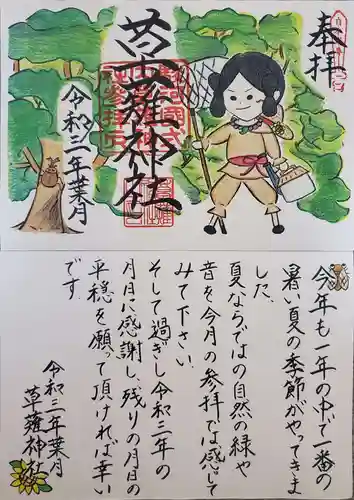 奉拝
草薙神社
令和三年葉月
今年も一年の中で一番の
暑い夏の季節がやってきま
した。
夏ならではの自然の緑や
音を今月の参拝では感じて
みて下さい。
そして過ぎし令和三年の
月日に感謝し、残りの月日の
平穏を願って頂ければ幸い
です。
令和三年葉月
草薙神社